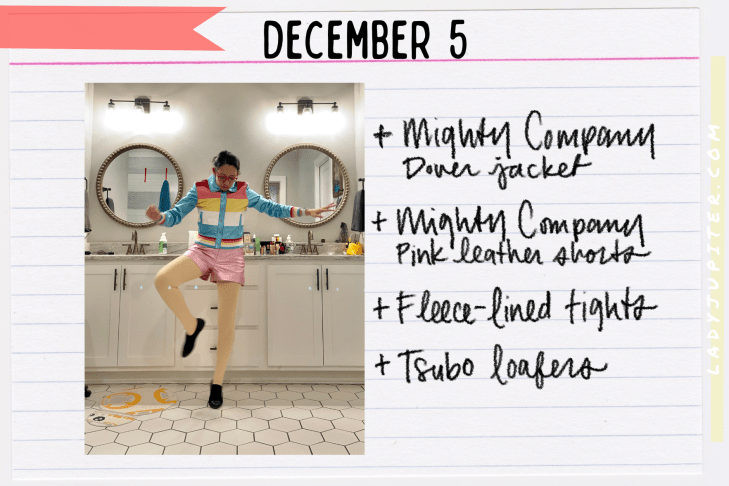 DECEMBER 5
+ Mighty Company
Dover jacket
+ Mighty Company
Pink leather shorts
+ Fleece-lined tights
+ Tsubo loafers
LADYJUPITER.COM